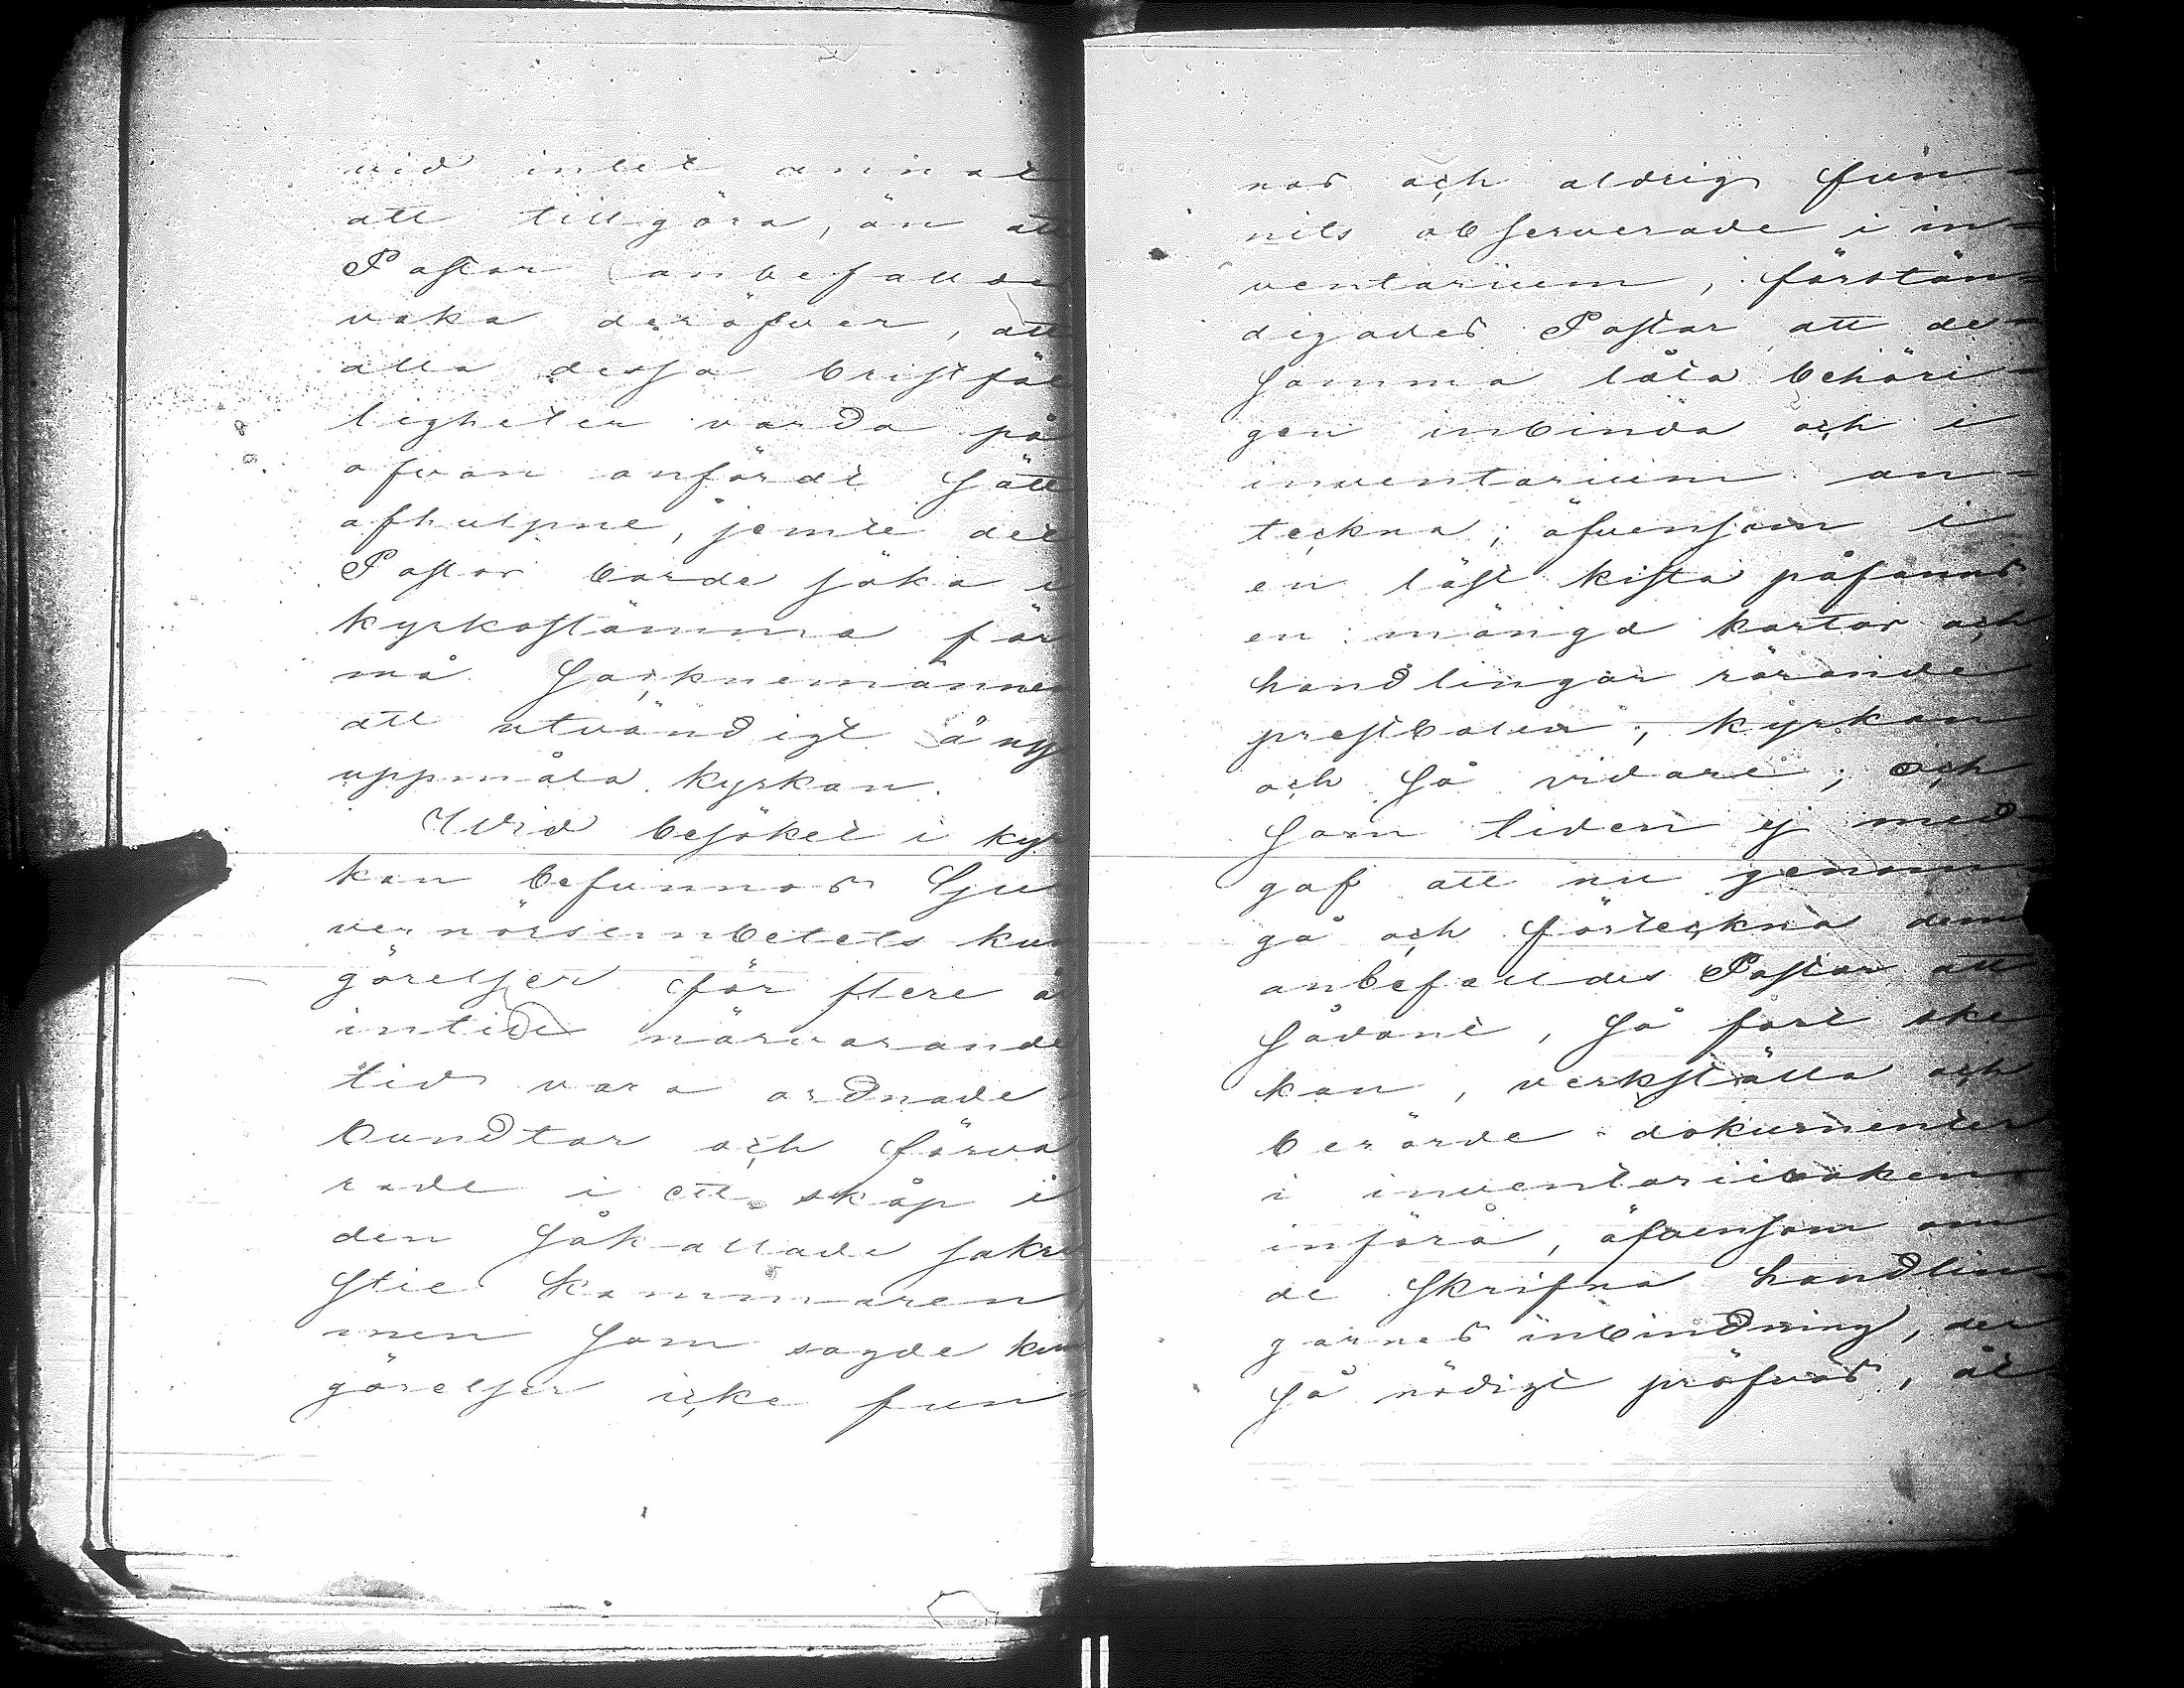 vid intet annat
att tillgöra, än att
Pastor anbefalldes
vaka deröfver, att
alla dessa bristfäl
ligheter varda på
ofvan anfördt sätt
afhulpne, jemte det
Pastor borde söka i
kyrkostämma för
må Socknemännen
att utvändigt å ny
uppmåla kyrkan.
Wid besöket i kyr
kan befunnos Gu
vernörsembetets kun
görelser för flere år
intill närvarande
tid vara ordnade
bundtar och förva
rade i ett skåp i
den såkallade sakri
stie kammaren,
men som sagde kun
görelser icke fun
nos och aldrig fun-
nits observerade i in-
ventarium, förstän-
digades Pastor att de-
samma låta behöri-
gen inbinda och i
inventarium an-
teckna; äfvensom i
en låst kista påfanns
en mängd kartor och
handlingar rörande
prestbolen, kyrkan
och så vidare; och
som tiden ej med-
gaf att nu genom
gå och förteckna dem
anbefalldes Pastor att
sådant, så fort ske
kan, verkställa och
berörde dokumenter
i inventariiboken
införa, äfvensom om
de skrifna handlin-
garnes inbindning, der
så nödigt pröfvas, åt